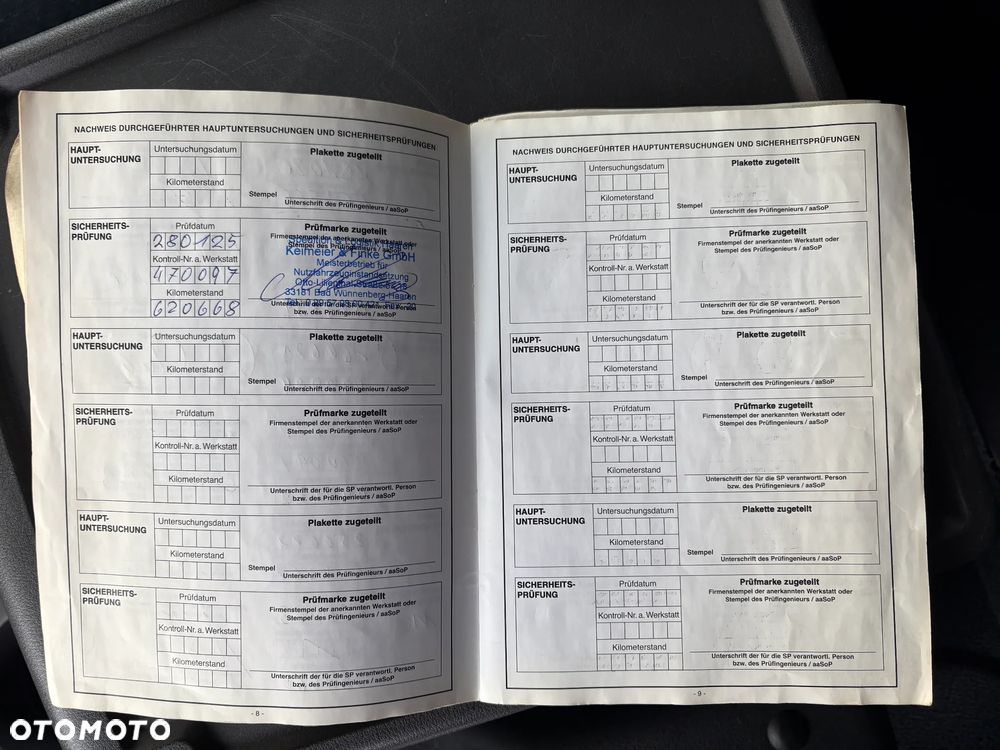 NACHWEIS DURCHGEFÜHRTER HAUPTUNTERSUCHUNGEN UND SICHERHEITSPRÜFUNGEN
HAUPT-
UNTERSUCHUNG
Untersuchungsdatum
Kilometerstand
Plakette zugeteilt
Stempel
Unterschrift des Prüfingenieurs / aaSoP
SICHERHEITS-
PRÜFUNG
Prüfdatum
280125
Kontroll-Nr. a. Werkstatt
470097
Kilometerstand
620668
Prüfmarke zugeteilt
Firmenstempel der anerkannten Werkstatt oder
Stempel des Prüfingenieurs / aaSoP
Keimeier & Finke GmbH
Meisterbetrieb für
Nutzfahrzeuginstandsetzung
33181 Bad Wünnenberg-Haaren
Unterschrift der für die SP verantwortl. Person
bzw. des Prüfingenieurs / aaSoP
HAUPT-
UNTERSUCHUNG
Untersuchungsdatum
Kilometerstand
Plakette zugeteilt
Stempel
Unterschrift des Prüfingenieurs / aaSoP
SICHERHEITS-
PRÜFUNG
Prüfdatum
Kontroll-Nr. a. Werkstatt
Kilometerstand
Prüfmarke zugeteilt
Firmenstempel der anerkannten Werkstatt oder
Stempel des Prüfingenieurs / aaSoP
Unterschrift der für die SP verantwortl. Person
bzw. des Prüfingenieurs / aaSoP
HAUPT-
UNTERSUCHUNG
Untersuchungsdatum
Kilometerstand
Plakette zugeteilt
Stempel
Unterschrift des Prüfingenieurs / aaSoP
SICHERHEITS-
PRÜFUNG
Prüfdatum
Kontroll-Nr. a. Werkstatt
Kilometerstand
Prüfmarke zugeteilt
Firmenstempel der anerkannten Werkstatt oder
Stempel des Prüfingenieurs / aaSoP
Unterschrift der für die SP verantwortl. Person
bzw. des Prüfingenieurs / aaSoP
- 8 -
NACHWEIS DURCHGEFÜHRTER HAUPTUNTERSUCHUNGEN UND SICHERHEITSPRÜFUNGEN
HAUPT-
UNTERSUCHUNG
Untersuchungsdatum
Kilometerstand
Plakette zugeteilt
Stempel
Unterschrift des Prüfingenieurs / aaSoP
SICHERHEITS-
PRÜFUNG
Prüfdatum
Kontroll-Nr. a. Werkstatt
Kilometerstand
Prüfmarke zugeteilt
Firmenstempel der anerkannten Werkstatt oder
Stempel des Prüfingenieurs / aaSoP
Unterschrift der für die SP verantwortl. Person
bzw. des Prüfingenieurs / aaSoP
HAUPT-
UNTERSUCHUNG
Untersuchungsdatum
Kilometerstand
Plakette zugeteilt
Stempel
Unterschrift des Prüfingenieurs / aaSoP
SICHERHEITS-
PRÜFUNG
Prüfdatum
Kontroll-Nr. a. Werkstatt
Kilometerstand
Prüfmarke zugeteilt
Firmenstempel der anerkannten Werkstatt oder
Stempel des Prüfingenieurs / aaSoP
Unterschrift der für die SP verantwortl. Person
bzw. des Prüfingenieurs / aaSoP
HAUPT-
UNTERSUCHUNG
Untersuchungsdatum
Kilometerstand
Plakette zugeteilt
Stempel
Unterschrift des Prüfingenieurs / aaSoP
SICHERHEITS-
PRÜFUNG
Prüfdatum
Kontroll-Nr. a. Werkstatt
Kilometerstand
Prüfmarke zugeteilt
Firmenstempel der anerkannten Werkstatt oder
Stempel des Prüfingenieurs / aaSoP
Unterschrift der für die SP verantwortl. Person
bzw. des Prüfingenieurs / aaSoP
- 9 -
OTOMOTO